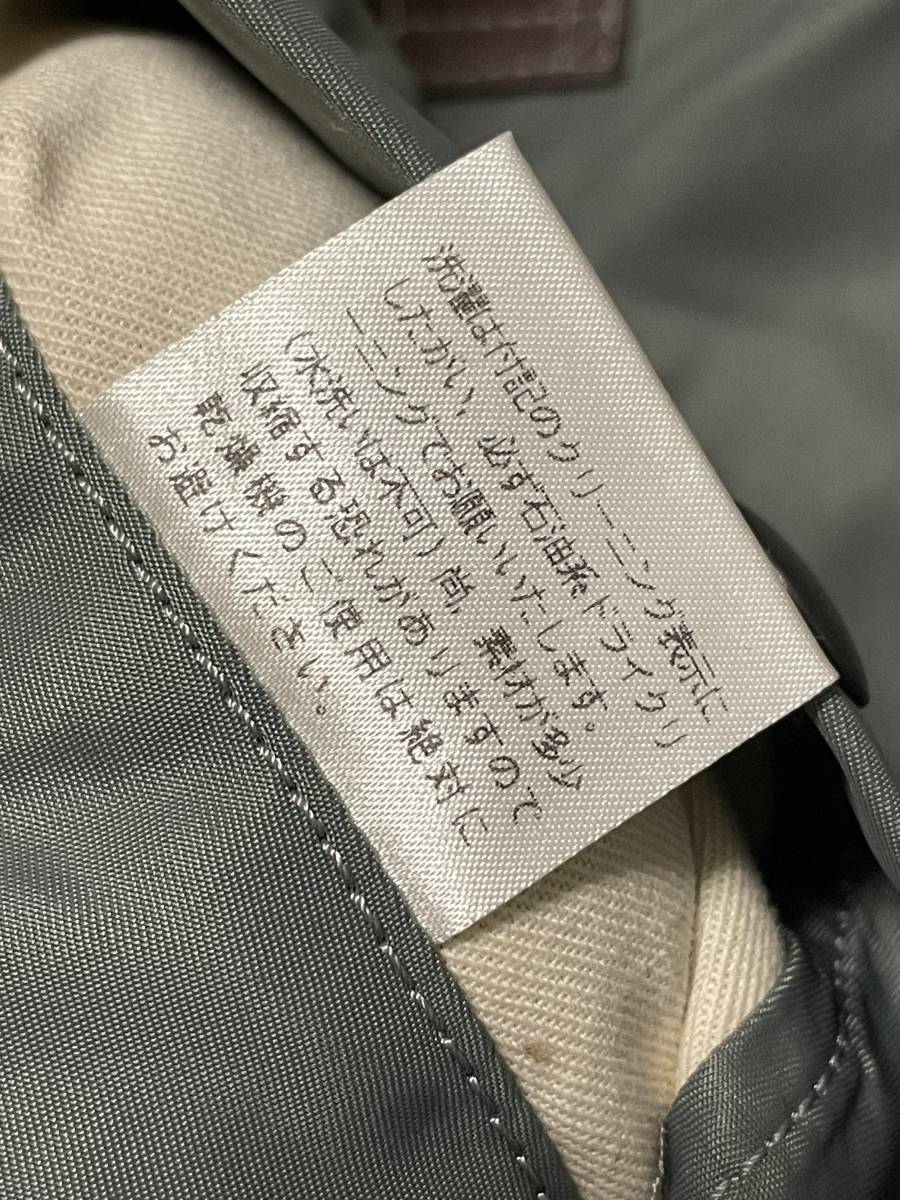 洗濯は付記のクリーニング表示に
したがい、必ず石油系ドライクリ
ーニングでお願いいたします。
（水洗いは不可）尚、素材が多少
収縮する恐れがありますので
乾燥機のご使用は絶対に
お避けください。